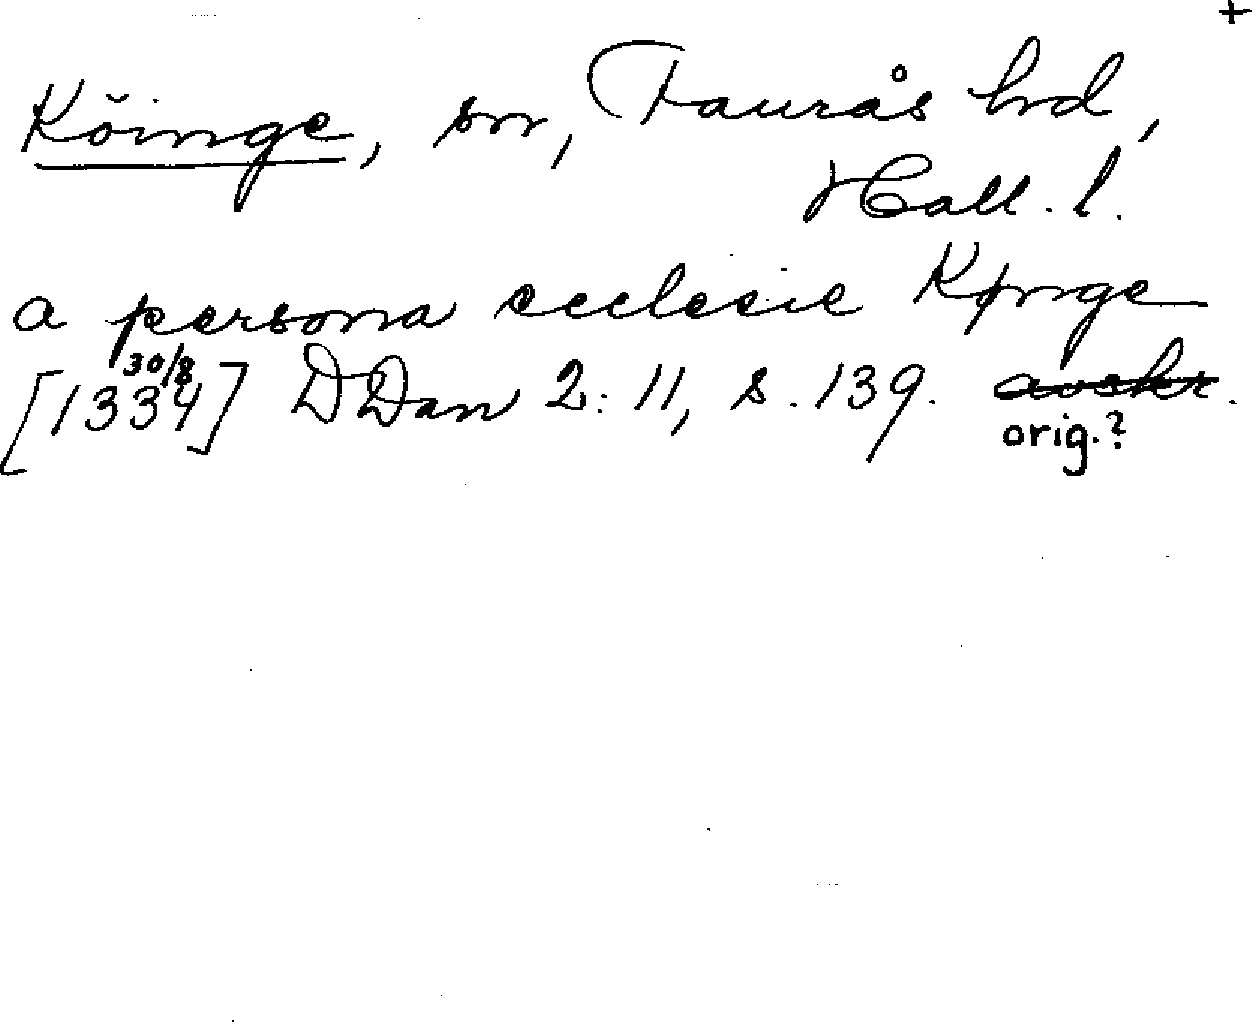 +
Köinge, sn, Faurås hd,
Hall. l.
a persona ecclesie Kønge
30/8
[1334] DDan 2: 11, s. 139. avskr.
orig.?